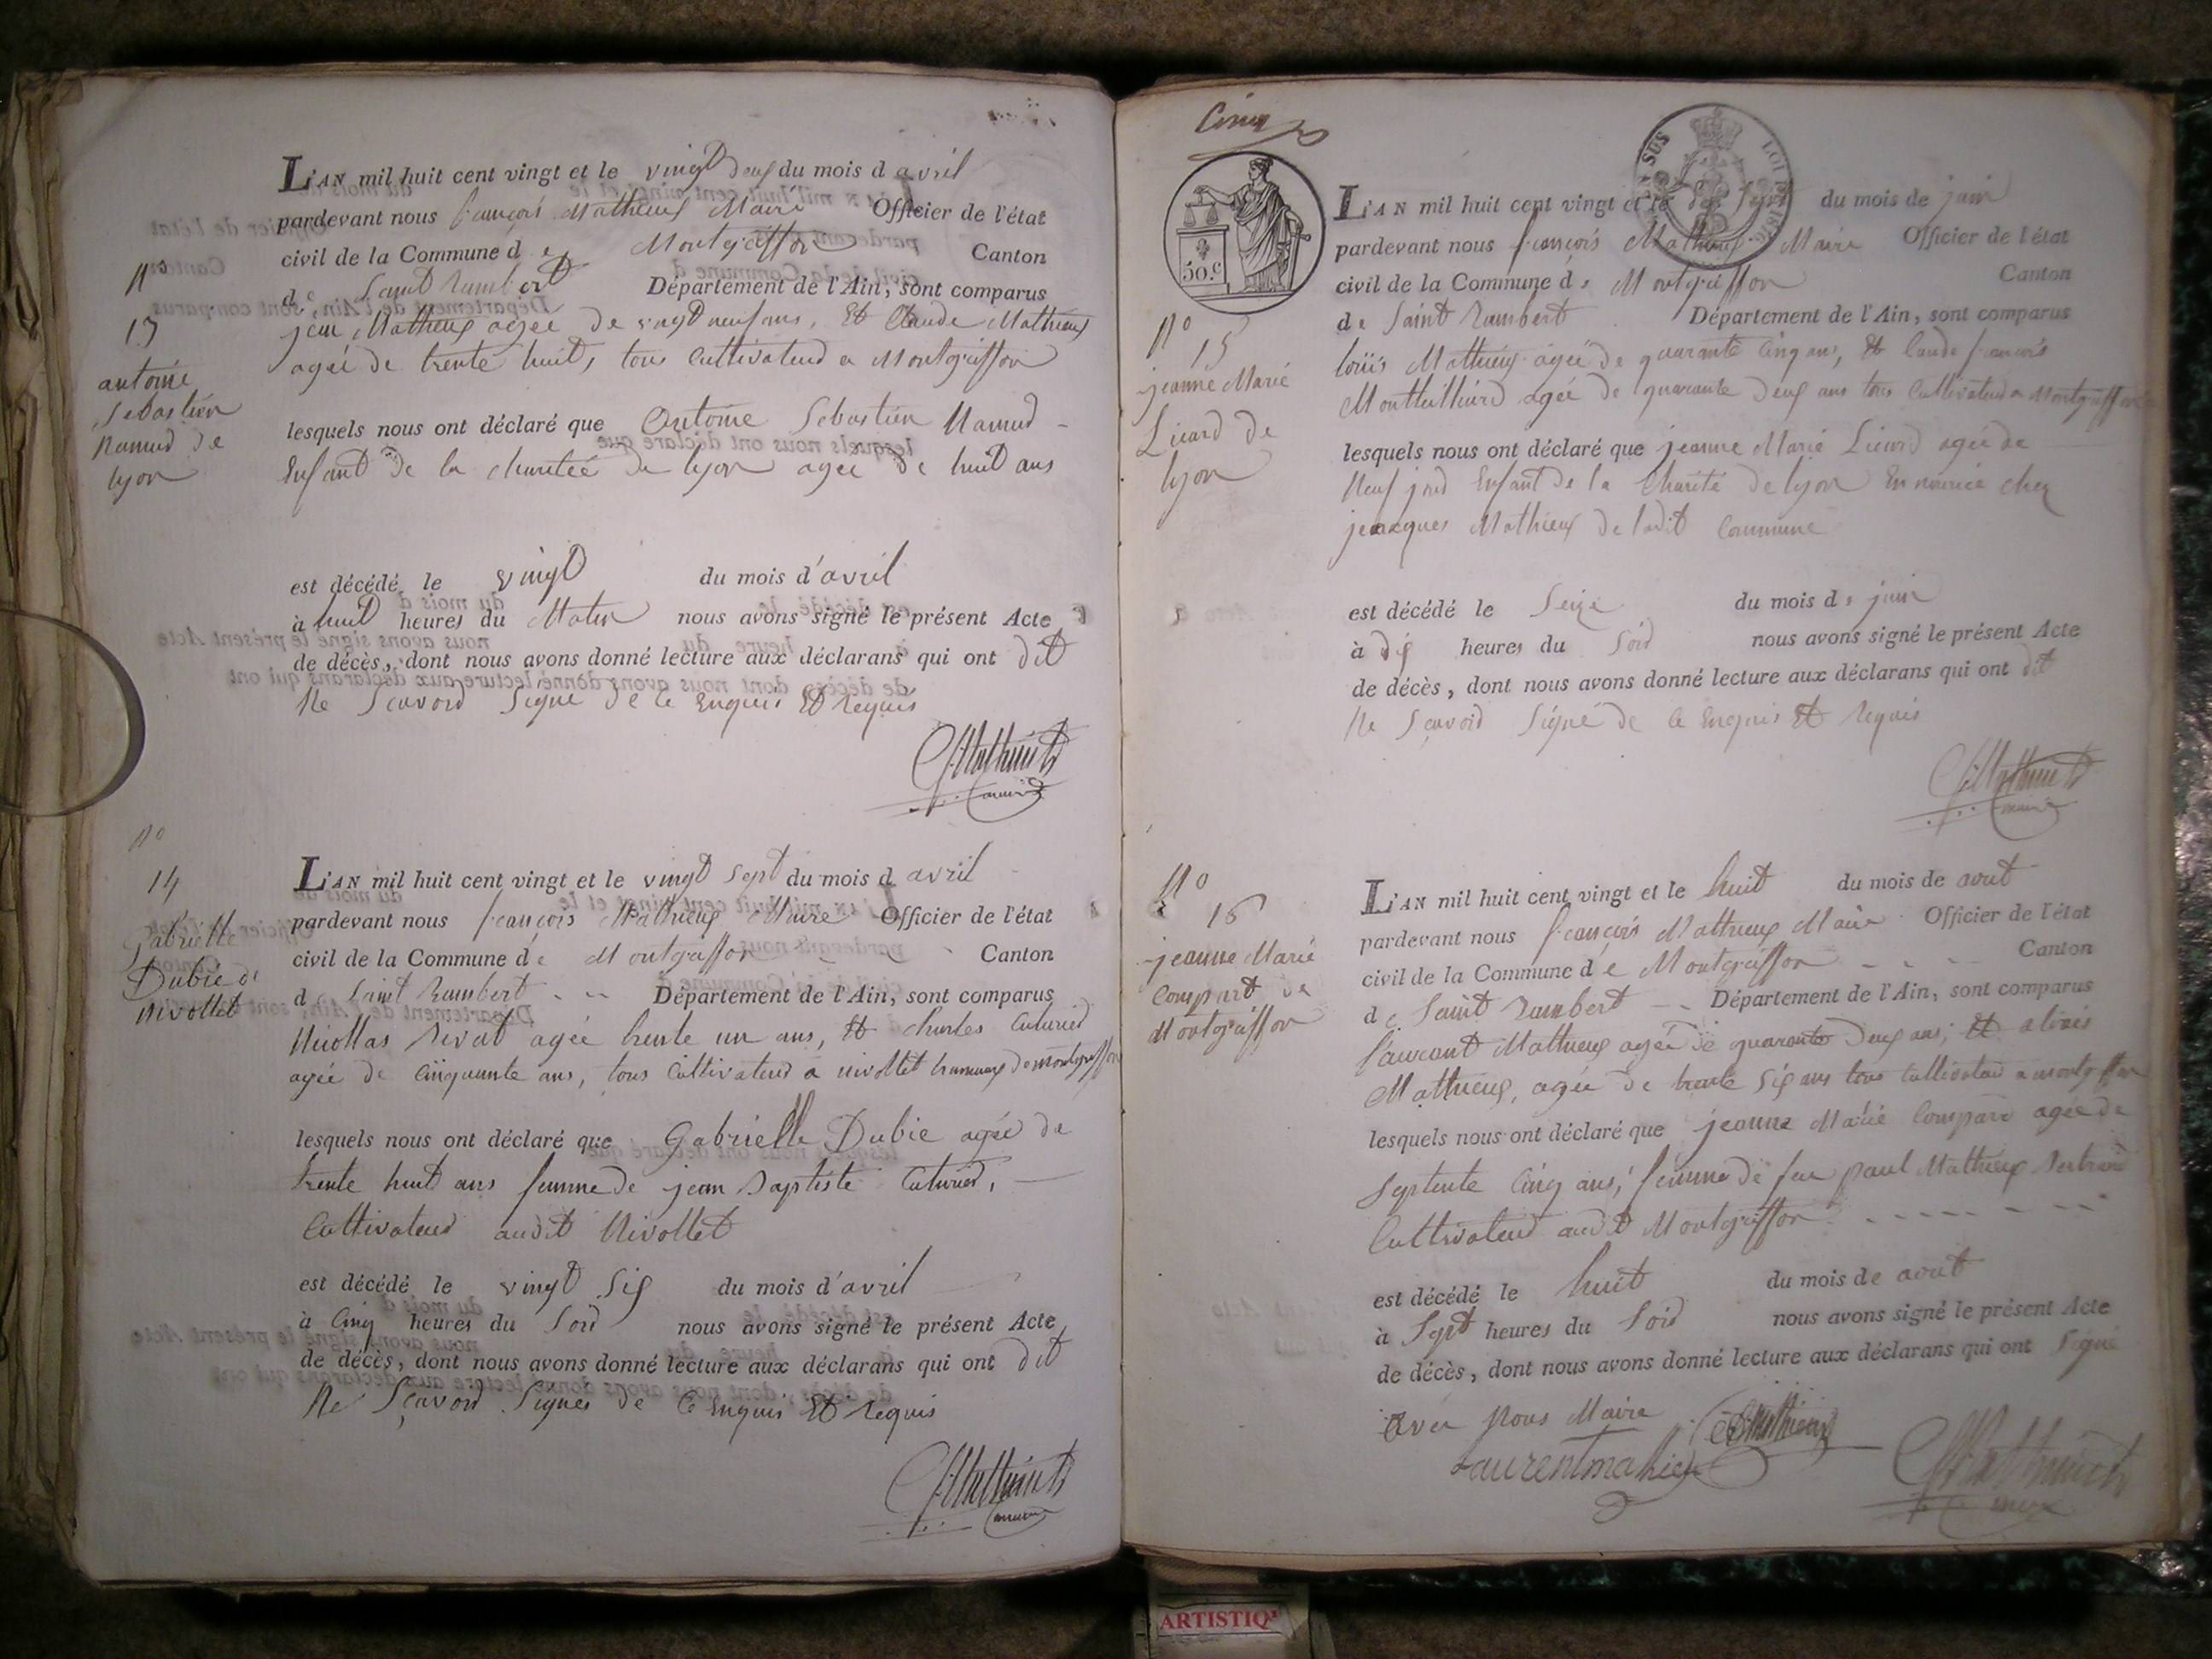 L'AN mil huit cent vingt et le vingt deux du mois d avril
pardevant nous françois Mathieux Maire Officier de l'état
civil de la Commune d e Montgriffon Canton
de Saint Rambert Département de l'Ain, sont comparus
jean Mathieux agée de vingt neuf ans, Et Claude Mathieux
agée de trente huit, tous Cultivateurs a Montgriffon
N°
13
antoine
Sebastien
Namud de
lyon
lesquels nous ont déclaré que Antoine Sebastien Namud
Enfant de la charitée de lyon agée de huit ans
est décédé le vingt du mois d'avril
à huit heures du Matin nous avons signé le présent Acte
de décès, dont nous avons donné lecture aux déclarans qui ont dit
Ne Scavoir Signé de ce Enquis Et Requis
Mathieux
maire
N°
14
Gabrielle
Dubie de
Nivollet
L'AN mil huit cent vingt et le vingt sept du mois d avril
pardevant nous françois Mathieux Maire Officier de l'état
civil de la Commune de Montgriffon Canton
de Saint Rambert Département de l'Ain, sont comparus
Nicollas agée trente un ans, Et charles
agée de Cinquante ans, tous Cultivateurs a nivollet hammeaux de montgriffon
lesquels nous ont déclaré que Gabrielle Dubie agée de
trente huit ans femme de jean Baptiste
Cultivateur audit Nivollet
est décédé le vingt Six du mois d'avril
à Cinq heures du Soir nous avons signé le présent Acte
de décès, dont nous avons donné lecture aux déclarans qui ont dit
Ne Sçavoir Signer de Ce Enquis Et Requis
Mathieux
maire
Cinq
50.c
L'AN mil huit cent vingt et le dix Sept du mois de juin
pardevant nous françois Mathieux Maire Officier de l'état
civil de la Commune de Montgriffon Canton
de Saint Rambert Département de l'Ain, sont comparus
loüis Mathieux agée de quarante Cinq ans, Et Claude françois
agée de quarante deux ans tous Cultivateurs a Montgriffon
N°
15
jeanne Marie
Licard de
lyon
lesquels nous ont déclaré que jeanne Marie Licard agée de
Neuf jour Enfant de la Charité de lyon En nourice chez
jeacques Mathieux de ladit Commune
est décédé le Seize du mois de juin
à dix heures du Soir nous avons signé le présent Acte
de décès, dont nous avons donné lecture aux déclarans qui ont dit
Ne Sçavoir Signé de Ce Enquis Et Requis
Mathieux
maire
N°
16
jeanne Marie
Compart de
Montgriffon
L'AN mil huit cent vingt et le huit du mois de aout
pardevant nous françois Mathieux Maire Officier de l'état
civil de la Commune d'e Montgriffon Canton
de Saint Rambert Département de l'Ain, sont comparus
Laureant Mathieux agée de quarante Deux ans, Et
Mathieux, agée de trente Six ans tous Cultivateurs a montgriffon
lesquels nous ont déclaré que jeanne Marie Compare agée de
Septente Cinq ans, femme de feu paul Mathieux
Cultivateur audit Montgriffon
est décédé le huit du mois de aout
à Sept heures du Soir nous avons signé le présent Acte
de décès, dont nous avons donné lecture aux déclarans qui ont Signé
Avec Nous Maire
Laurent mathieu
Mathieux
maire
ARTISTIQ